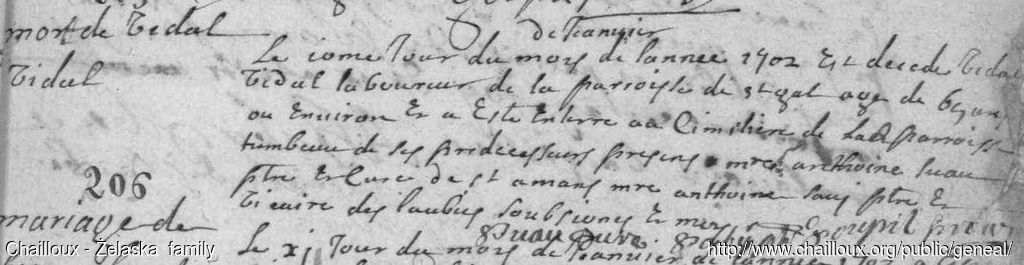 mort de Vidal
Vidal
de Janvier
Le iome Jour du mois de lannee 1702 Est decede Vidal
Vidal laboureur de la parroisse de st gal age de
ou Environ Et a Este Enterre au Cimitiere de lad parroisse
tumbeau de ses predecesseurs presens mre anthoine
ptre Et Cure de st amans mre anthoine ptre Et
Vicaire des laubies soubsignes Et
206
mariage de
Le xj Jour du mois de Janvier de lannee
Chailloux - Želaska family
http://www.chailloux.org/public/geneal/